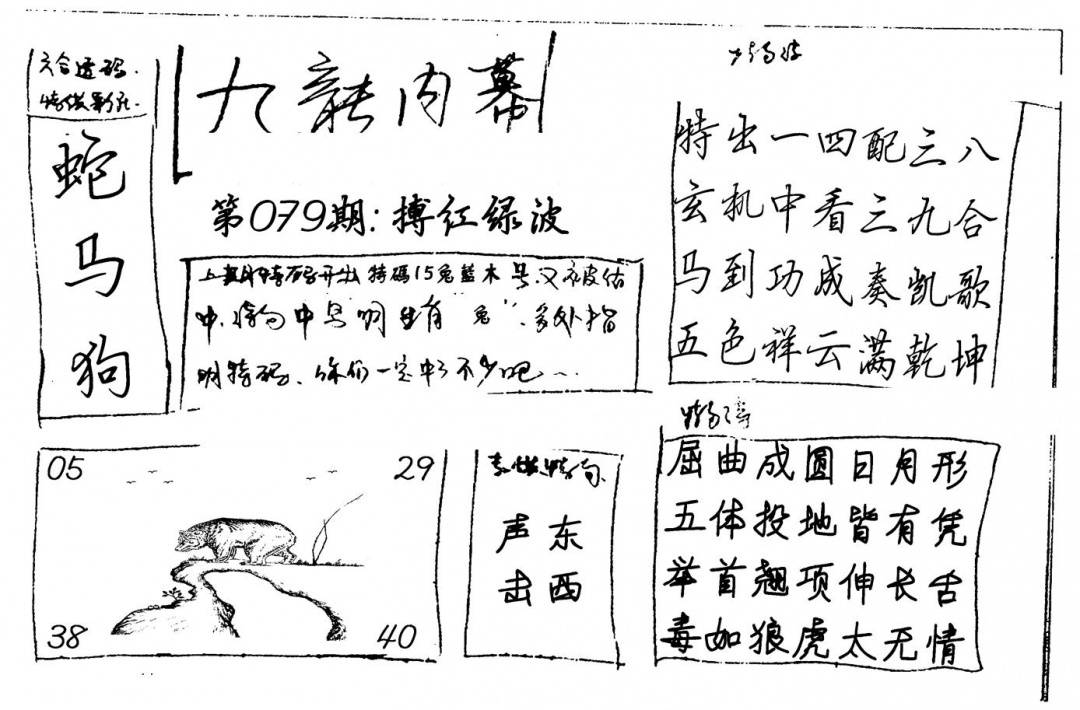 六合透码.
蛇
马
狗
九龍内幕
第079期:搏红绿波
上期特码开出特碼15兔蓝木号.又被估
中.诗句中早明
明特码.你们一定中了不少吧
特出一四配三八
玄机中看三九合
马到功成奏凯歌
五色祥云满乾坤
05
29
38
40
声东
击西
屈曲成圆日月形
五体投地皆有凭
举首翘项伸长舌
毒如狼虎太无情